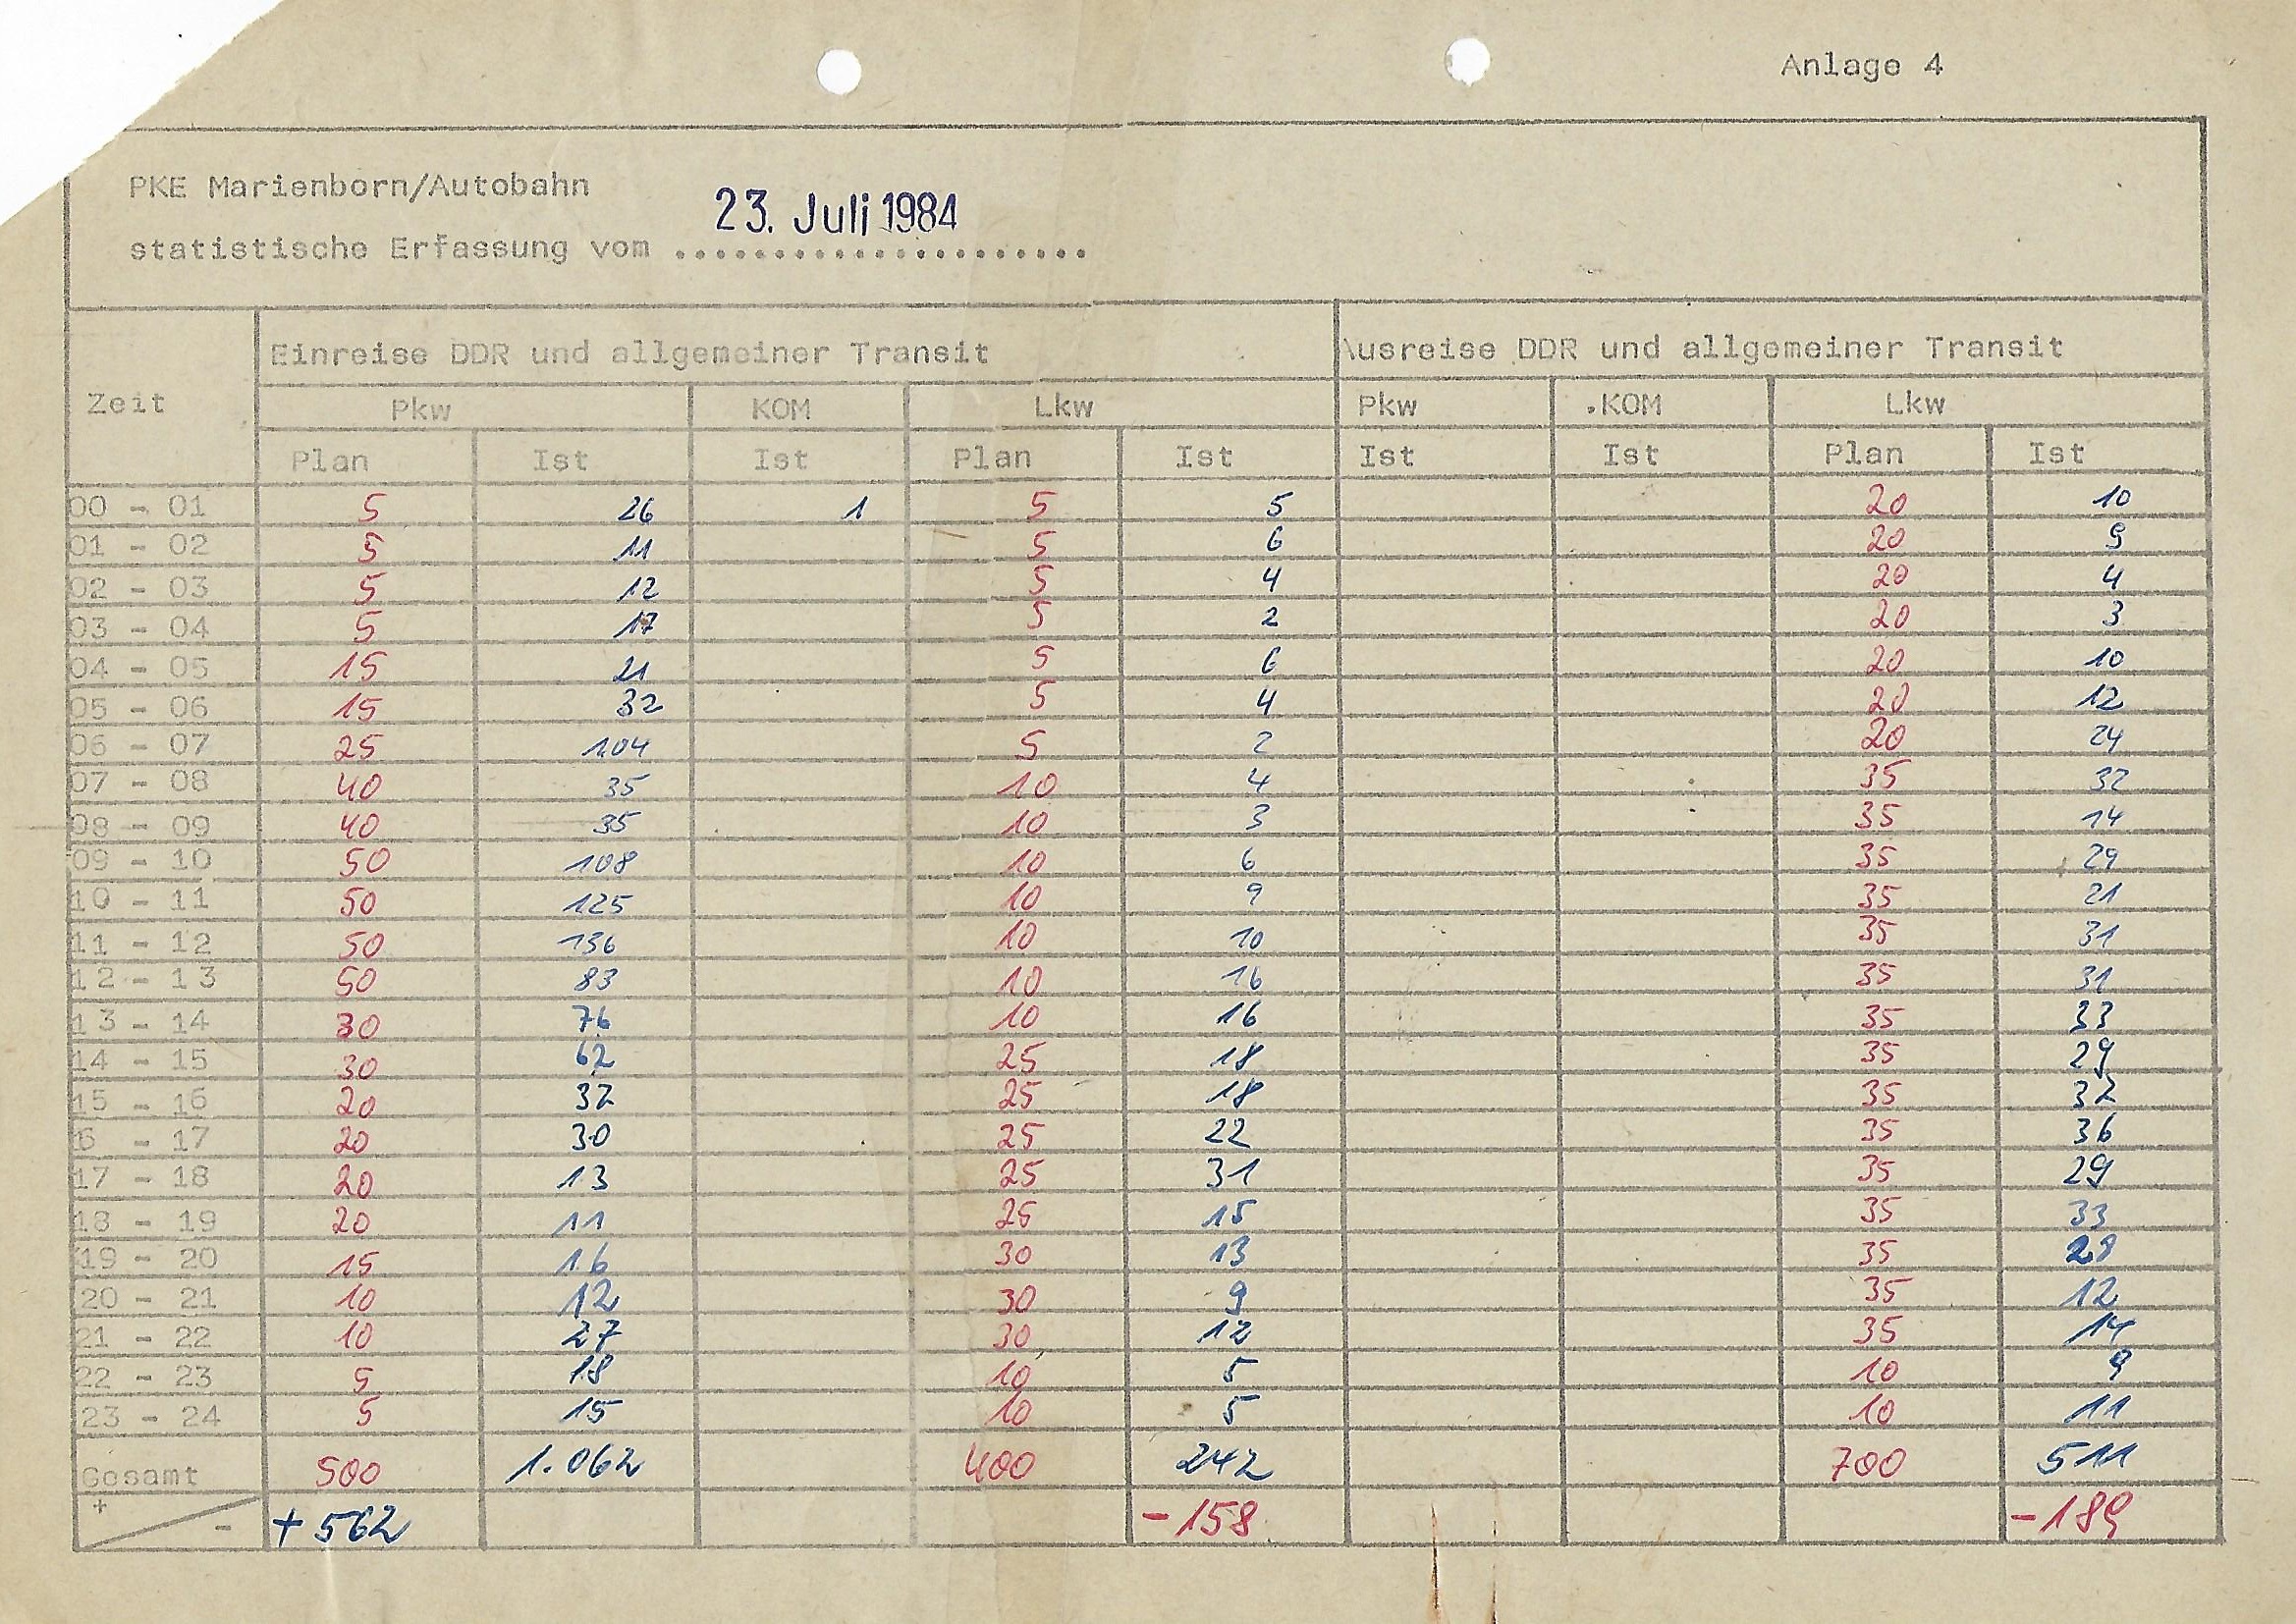 Anlage 4
PKE Marienborn/Autobahn
23. Juli 1984
statistische Erfassung vom .....................
Zeit Einreise DDR und allgemeiner Transit Ausreise DDR und allgemeiner Transit
Pkw KOM Lkw Pkw .KOM Lkw
Plan Ist Ist Plan Ist Ist Ist Plan Ist
00 - 01 5 26 1 5 5 20 10
01 - 02 5 11 5 6 20 9
02 - 03 5 12 5 4 20 4
03 - 04 5 17 5 2 20 3
04 - 05 15 21 5 6 20 10
05 - 06 15 32 5 4 20 12
06 - 07 25 104 5 2 20 24
07 - 08 40 35 10 4 35 32
08 - 09 40 35 10 3 35 14
09 - 10 50 108 10 6 35 29
10 - 11 50 125 10 9 35 21
11 - 12 50 136 10 10 35 31
12 - 13 50 83 10 16 35 31
13 - 14 30 76 10 16 35 33
14 - 15 30 62 25 18 35 29
15 - 16 20 32 25 18 35 32
6 - 17 20 30 25 22 35 36
17 - 18 20 13 25 31 35 29
18 - 19 20 11 25 15 35 33
19 - 20 15 16 30 13 35 28
20 - 21 10 12 30 9 35 12
21 - 22 10 27 30 12 35 14
22 - 23 5 18 10 5 10 9
23 - 24 5 15 10 5 10 11
Gesamt 500 1.062 400 242 700 511
+ - + 562 - 158 - 189